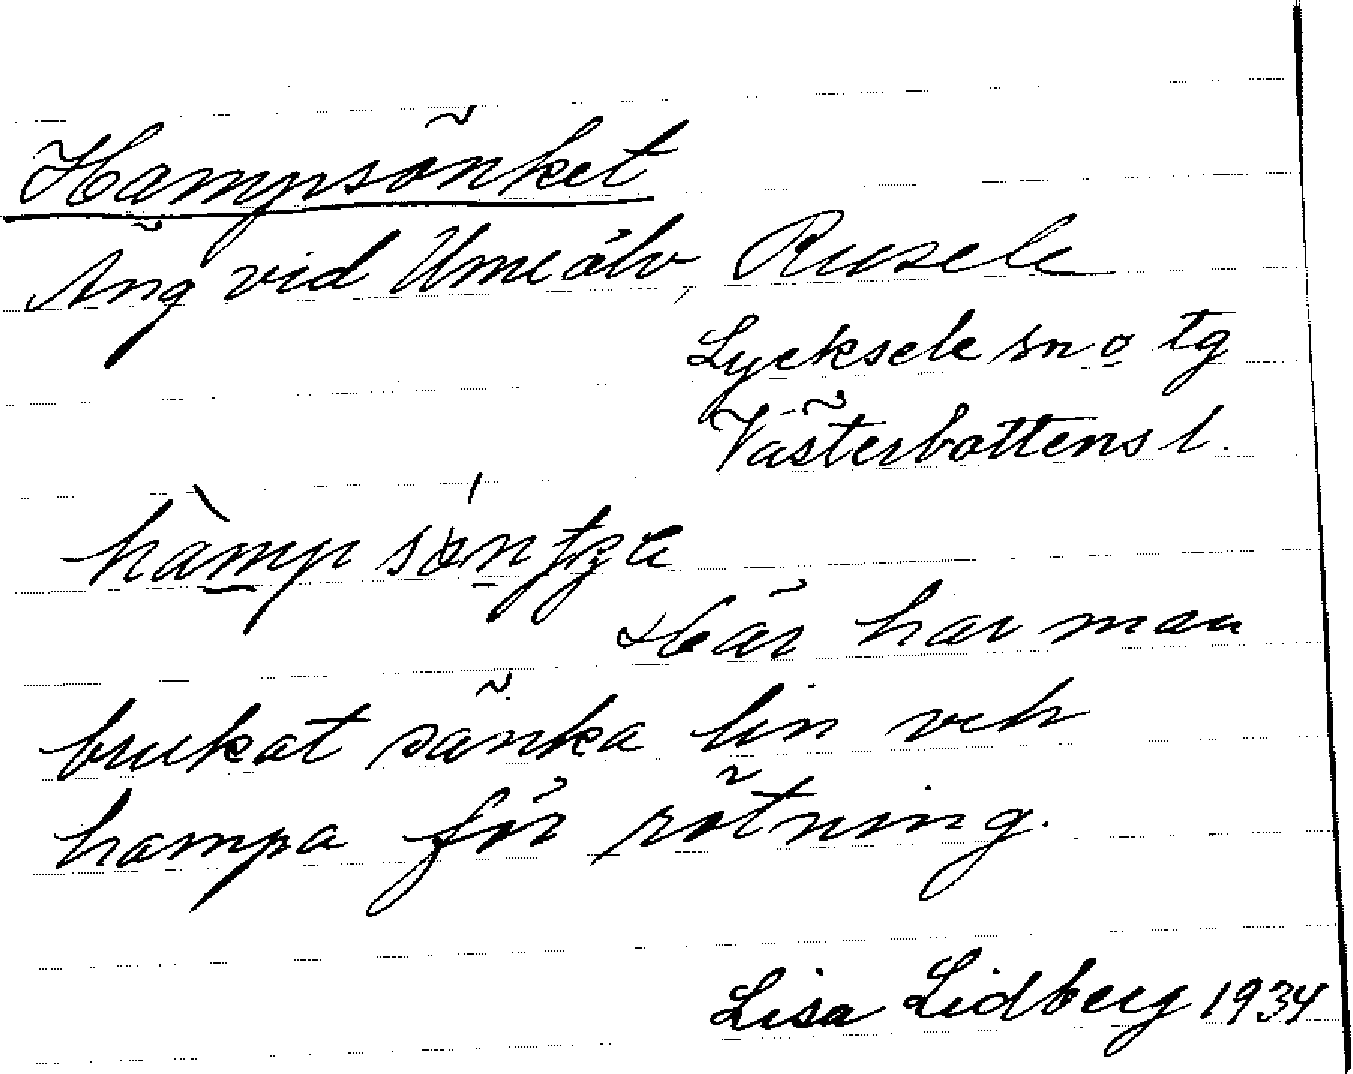 Hampsänket
Äng vid Umeälv, Rusele
Lycksele sn o tg
Västerbottens l.
Här har man
brukat sänka lin och
hampa för rötning.
Lisa Lidberg 1934